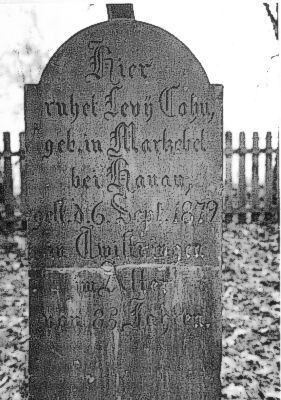 Hier
ruhet Levÿ Cohn,
geb. in Markobel
bei Hanau,
gest. d. 6. Sept. 1879
in Twistringen
im Alter
von 85 Jahren.